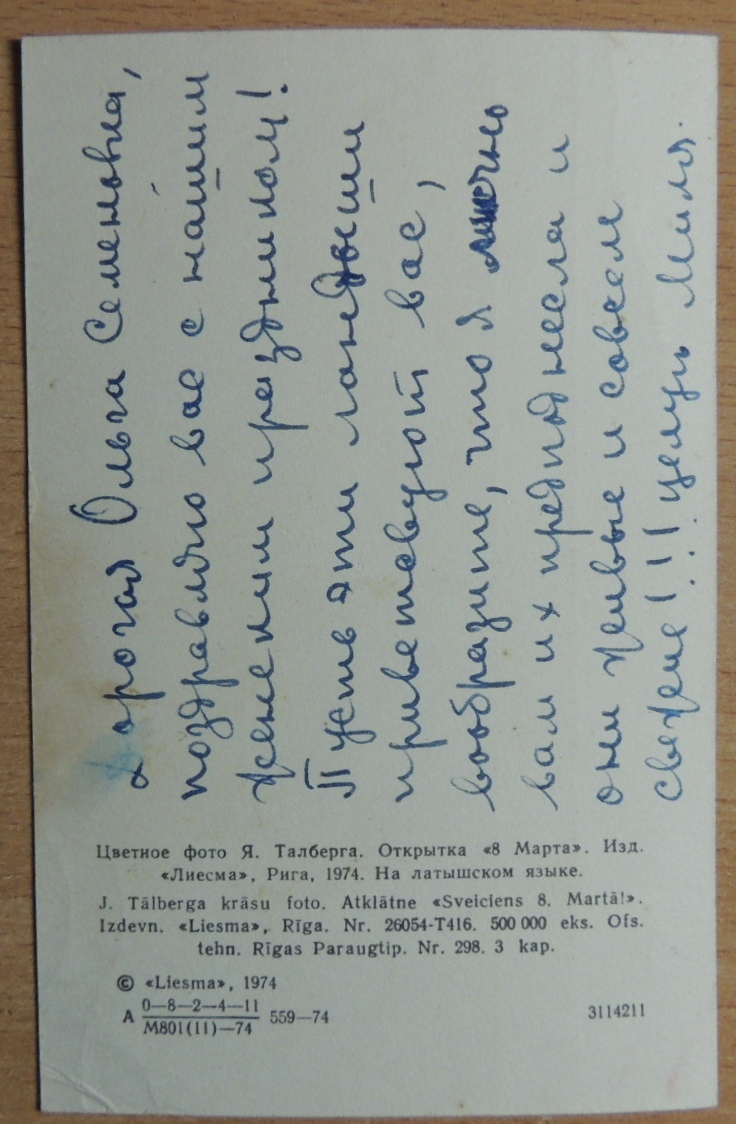 Дорогая Ольга Семеновна,
поздравляю вас с нашим
женским праздником!
Пусть эти ландыши
приветствуют вас,
вообразите, что я лично
вам их преподнесла и
они живые и совсем
свежие!!! Целую Миля.
Цветное фото Я. Талберга. Открытка «8 Марта». Изд.
«Лиесма», Рига, 1974. На латышском языке.
J. Tālberga krāsu foto. Atklātne «Sveiciens 8. Martā!».
Izdevn. «Liesma», Rīga. Nr. 26054-T416. 500 000 eks. Ofs.
tehn. Rīgas Paraugtip. Nr. 298. 3 kap.
© «Liesma», 1974
A 0—8—2—4—11
M801(11)—74 559—74
3114211